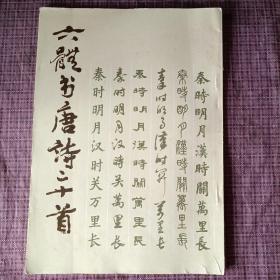 六體书唐詩二十首
秦時明月漢時關萬里長
秦時明月漢時關萬里長
秦时明月漢时关萬里長
秦時明月漢時關萬里長
秦时明月汉時关萬里長
秦时明月汉时关万里长